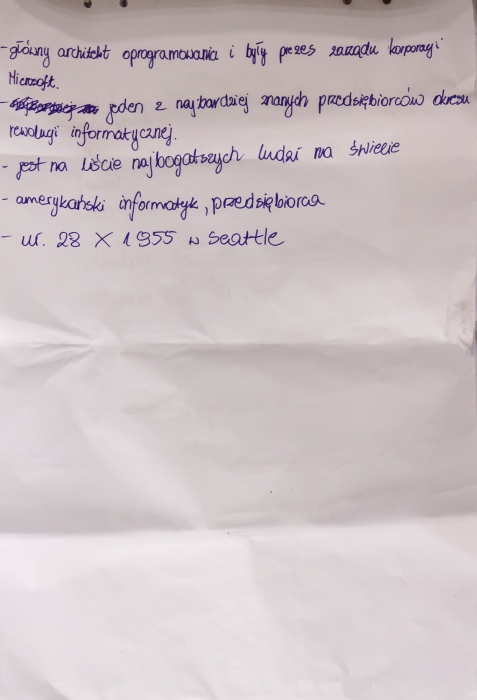 - główny architekt oprogramowania i były prezes zarządu korporacji
Microsoft.
- jeden z najbardziej znanych przedsiębiorców okresu
rewolucji informatycznej.
- jest na liście najbogatszych ludzi na świecie
- amerykański informatyk, przedsiębiorca
- ur. 28 X 1955 w Seattle